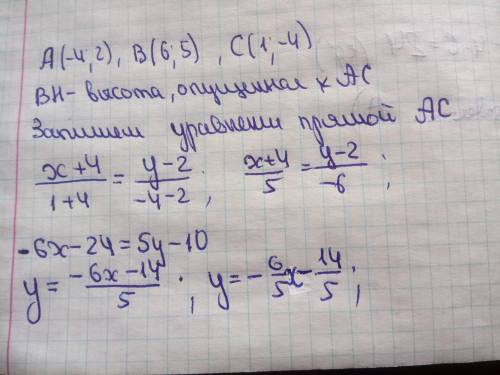 A(-4;2), B(6;5), C(1;-4)
BH- высота, опущенная к AC
Запишем уравнении прямой AC
(x+4)/(1+4) = (y-2)/(-4-2); (x+4)/5 = (y-2)/(-6);
-6x-24=5y-10
y = (-6x-14)/5; y = -6/5x - 14/5;